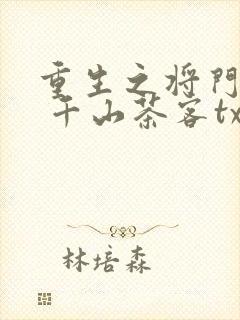 重生之将門
千山茶客tx
林培森